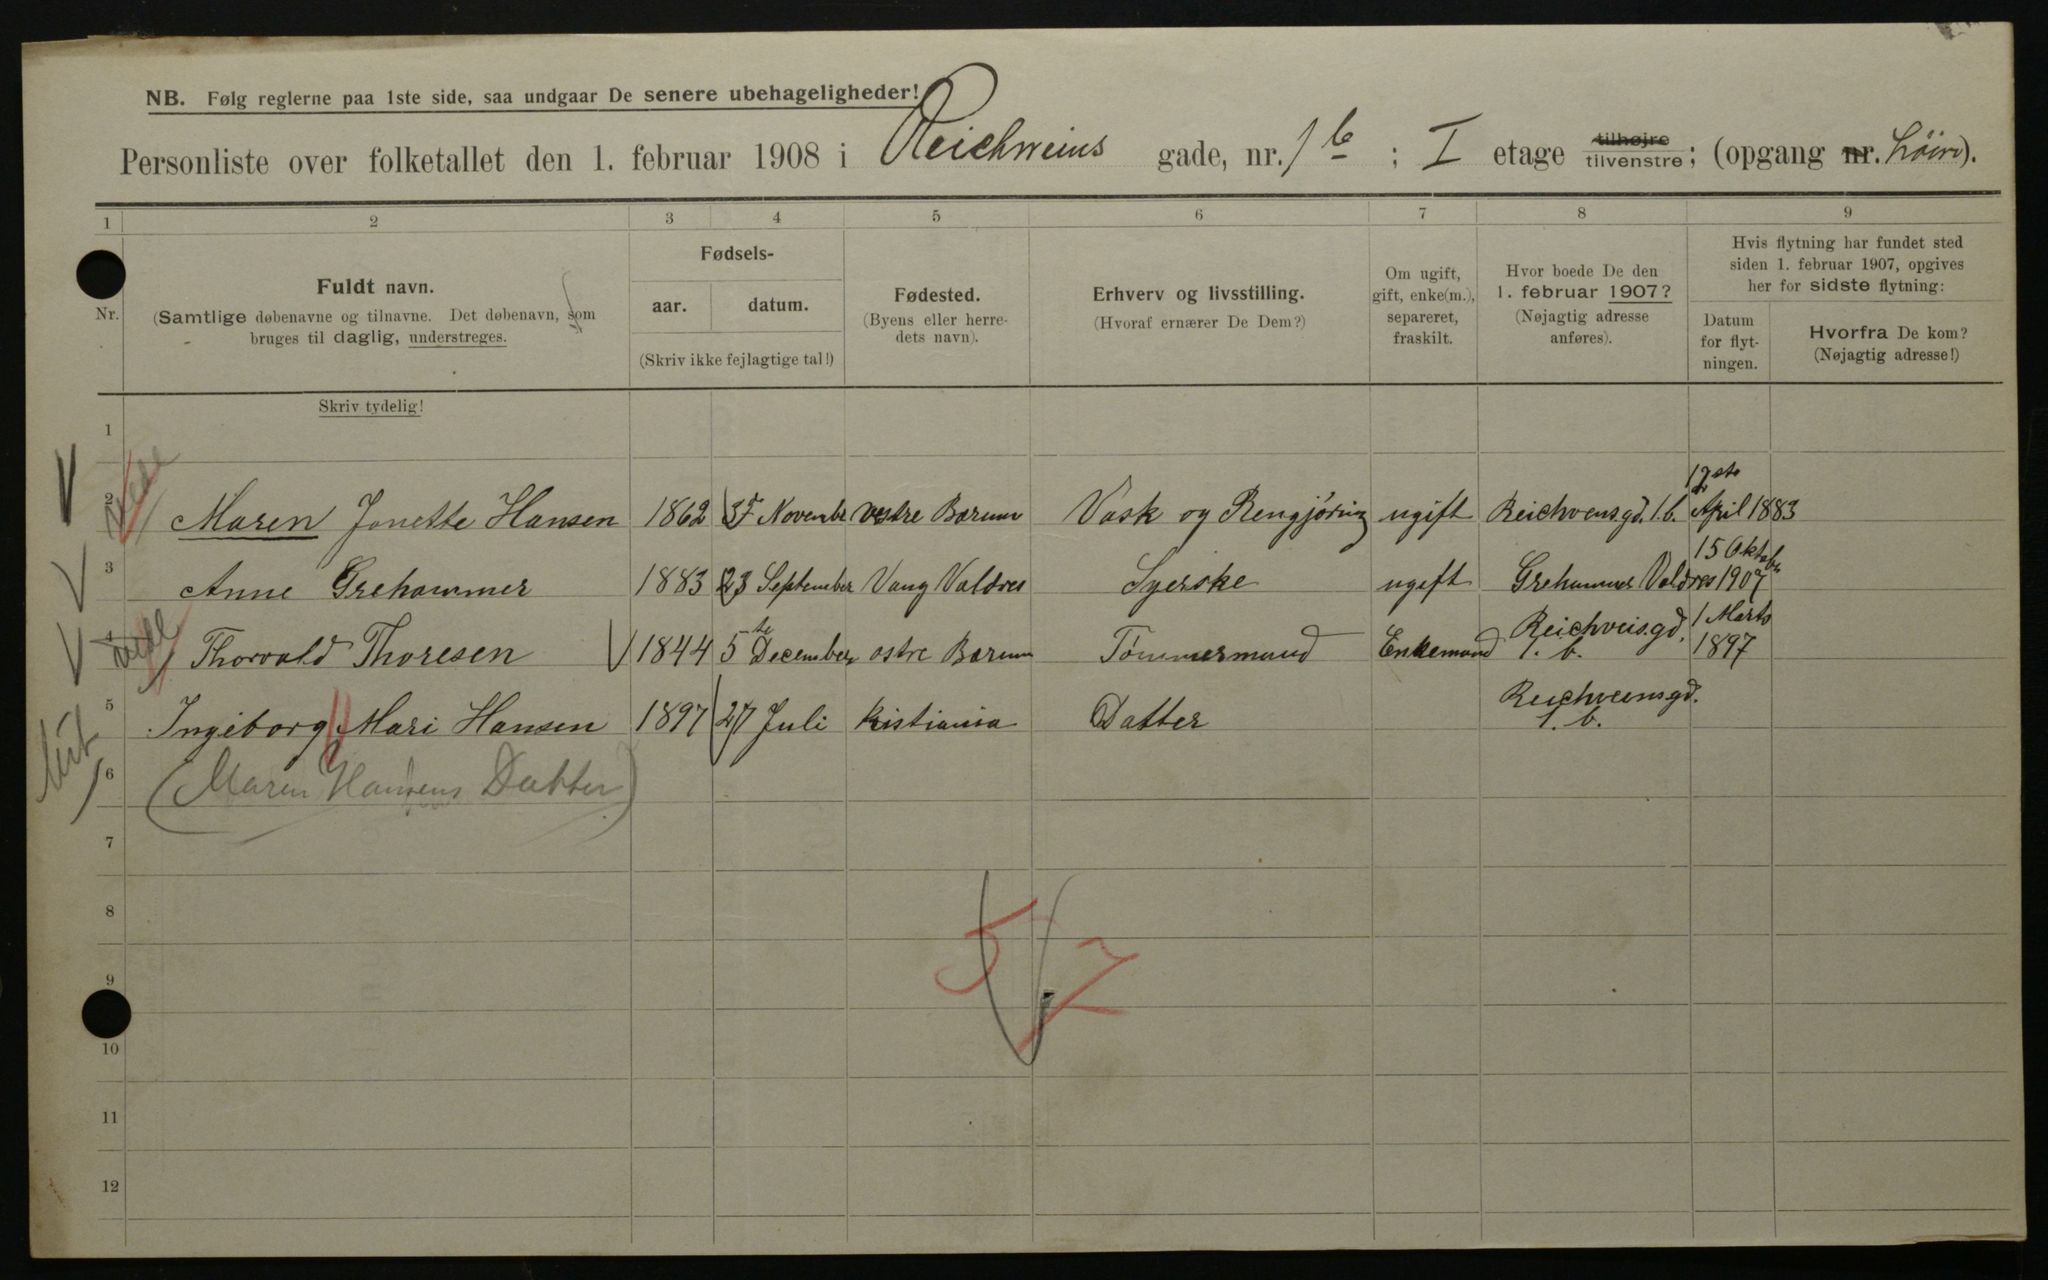 NB. Følg reglerne paa 1ste side, saa undgaar De senere ubehageligheder!
Personliste over folketallet den 1. februar 1908 i Reichweins gade, nr. 1 b ; I etage tilhøjre tilvenstre; (opgang nr. ).
1 2 3 4 5 6 7 8 9
Nr.
Fuldt navn.
(Samtlige døbenavne og tilnavne. Det døbenavn, som
bruges til daglig, understreges.
Skriv tydelig!
Fødsels-
aar. datum.
(Skriv ikke fejlagtige tal!)
Fødested.
(Byens eller herre-
dets navn).
Erhverv og livsstilling.
(Hvoraf ernærer De Dem?)
Om ugift,
gift, enke(m.),
separeret,
fraskilt.
Hvor boede De den
1. februar 1907?
(Nøjagtig adresse
anføres).
Hvis flytning har fundet sted
siden 1. februar 1907, opgives
her for sidste flytning:
Datum
for flyt-
ningen.
Hvorfra De kom?
(Nøjagtig adresse!)
1
2 Maren Jonette Hansen 1862 Novembr vestre Barum Vask og Rengjøring ugift Reichvensgd. 1.b. April 1883
3 Anne Grehammer 1883 23 September Vang Valdres Syerske ugift Grehammer Valdres 15 Oktober 1907
4 Thorvald Thoresen 1844 5te December ostre Barum Tømmermand Enkemand Reichveisgd. 1. b. 1 Marts 1897
5 Ingeborg Mari Hansen 1897 27 Juli Kistiania Datter Reichvensgd. 1. b.
6 (Maren Hansens Datter)
7
8
5 2
9
10
11
12